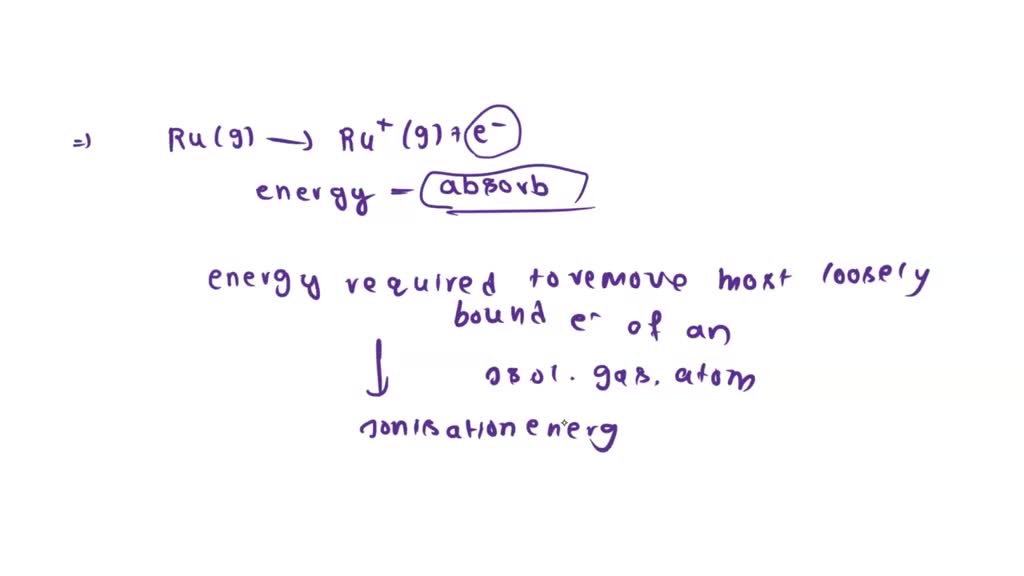 =) Ru(g) → Ru⁺(g) + e⁻
energy - absorb
energy required to remove most loosely
bound e⁻ of an
isol. gas. atom
↓
ionisation energ